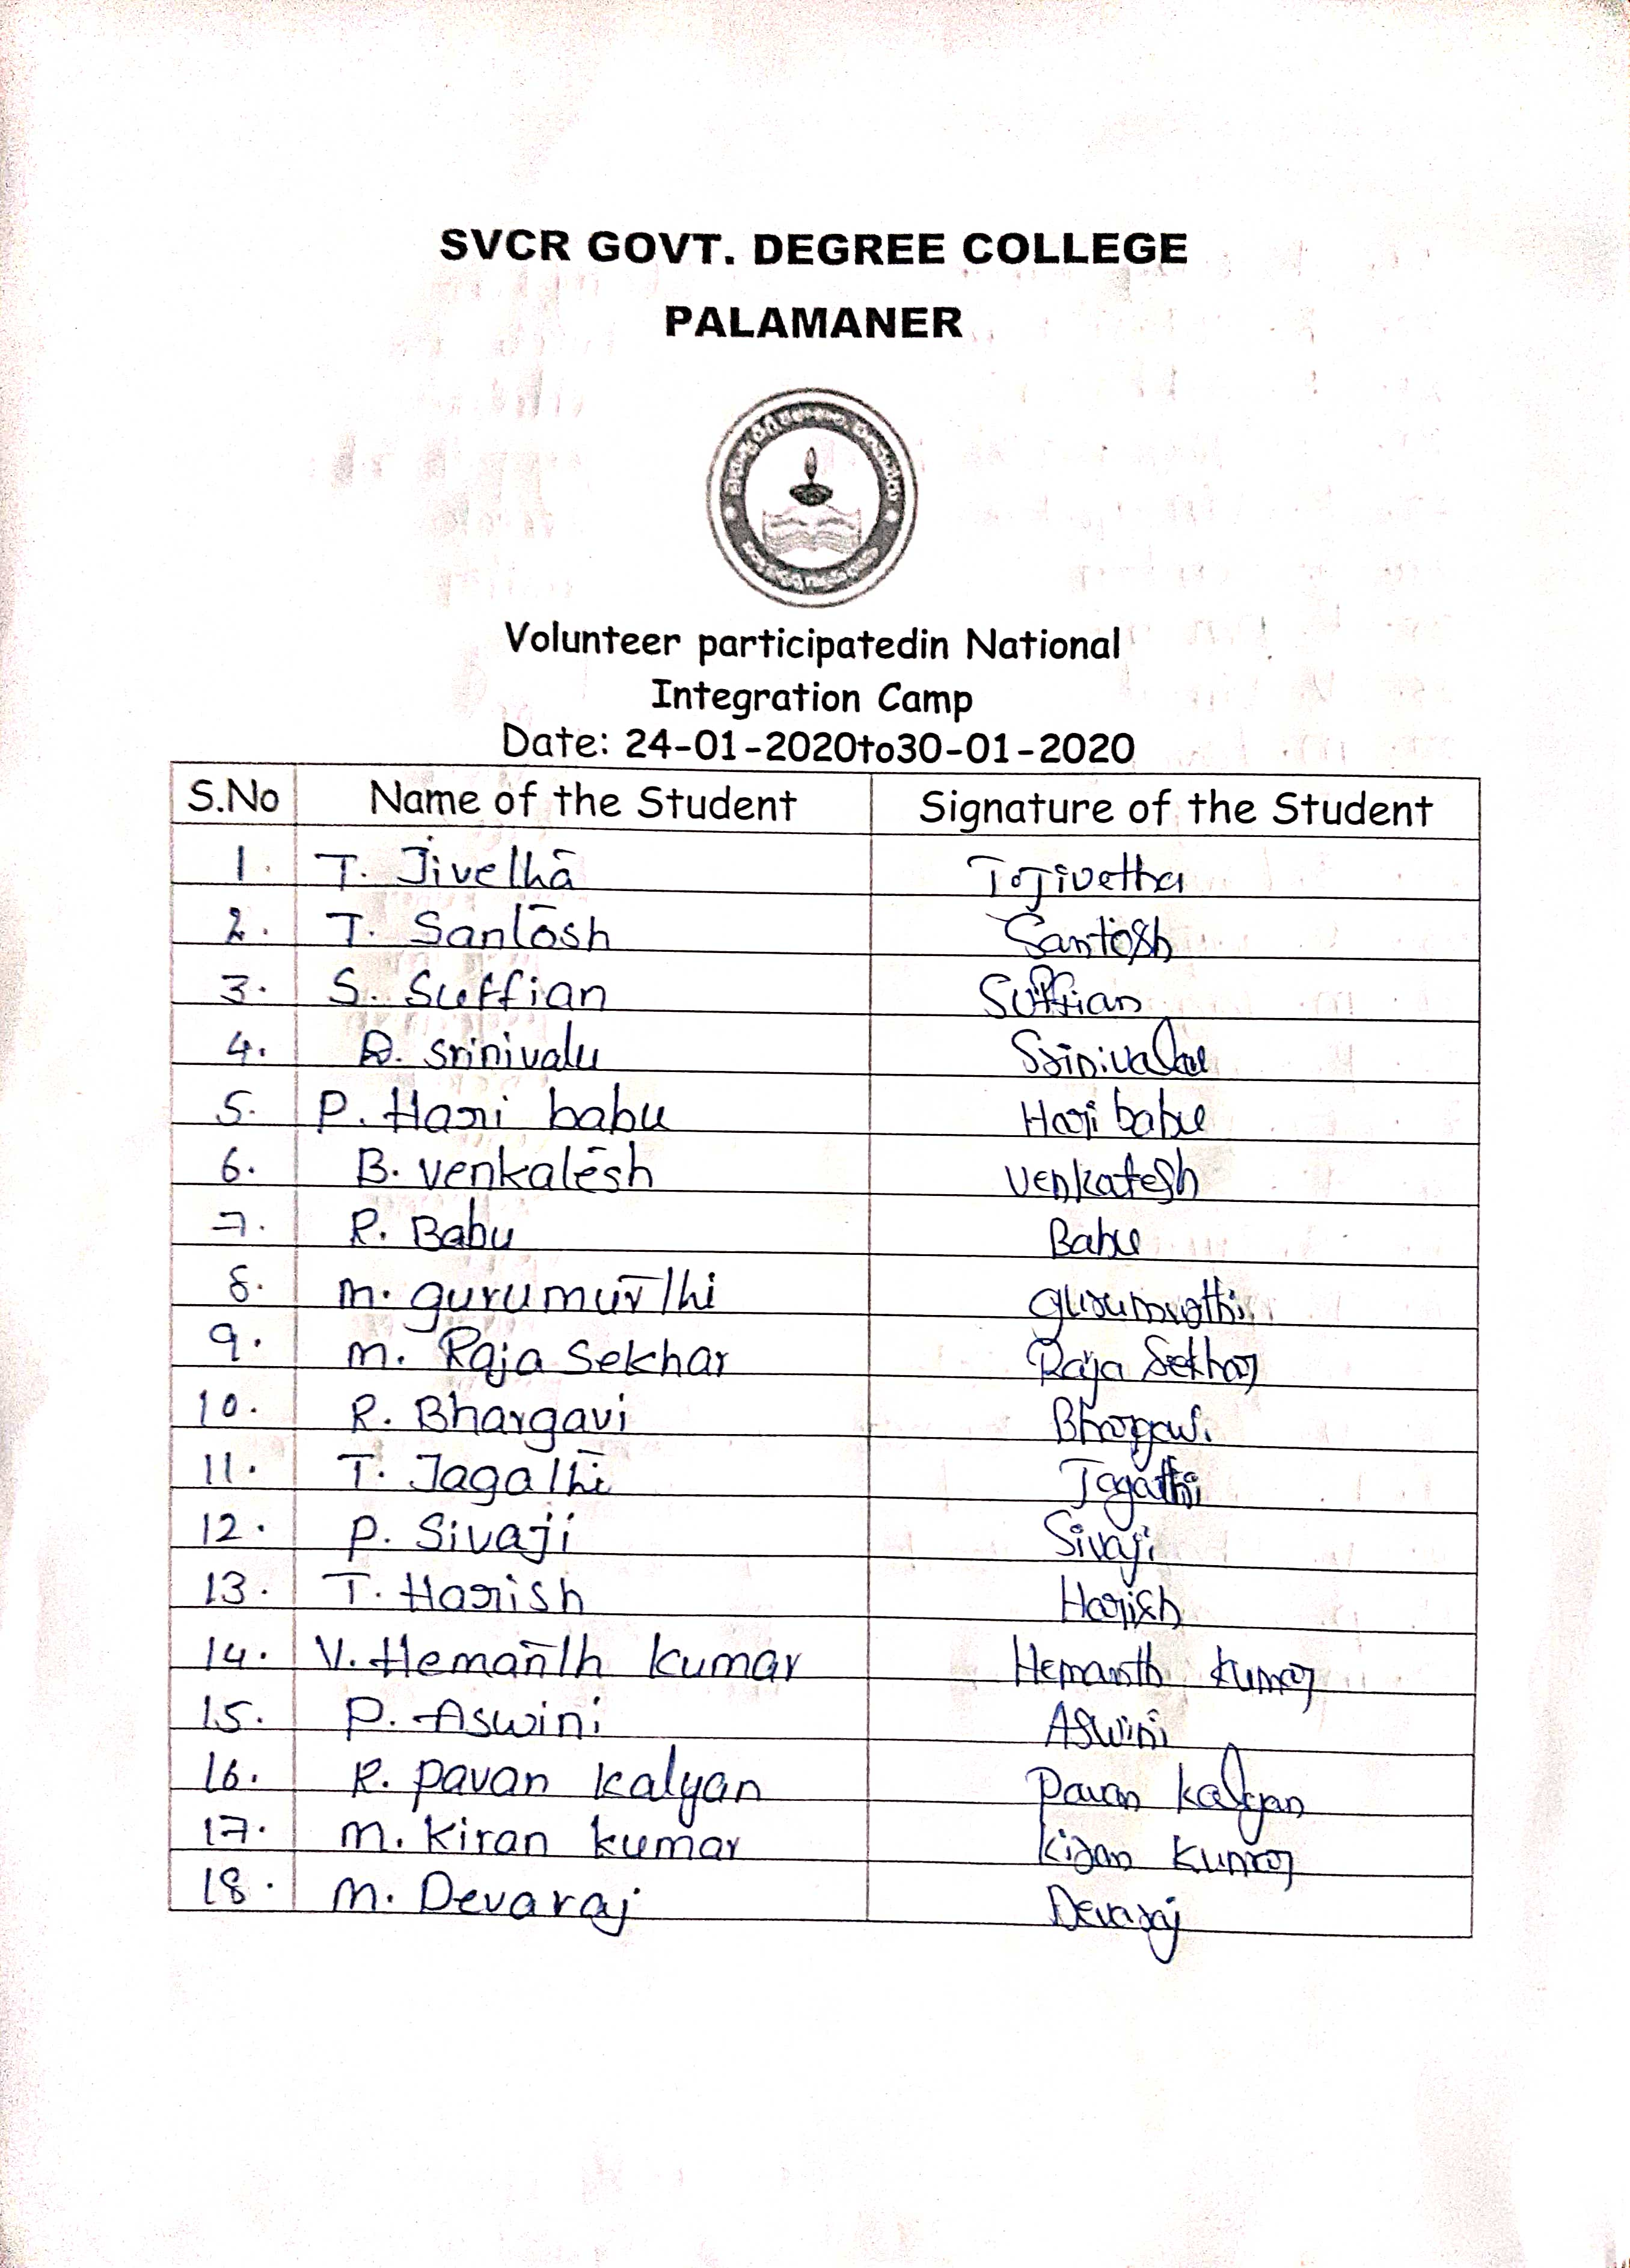 SVCR GOVT. DEGREE COLLEGE
PALAMANER
Volunteer participatedin National
Integration Camp
Date: 24-01-2020to30-01-2020
S.No Name of the Student Signature of the Student
1. T. Jivetha T. Jivetha
2. T. Santosh Santosh
3. S. Suffian Suffian
4. D. Srinivalu Srinivalu
5. P. Hari babu Hari babu
6. B. Venkatesh Venkatesh
7. R. Babu Babu
8. M. gurumurthi gurumurthi
9. M. Raja Sekhar Raja Sekhar
10. R. Bhargavi Bhargavi
11. T. Jagathi Jagathi
12. P. Sivaji Sivaji
13. T. Harish Harish
14. V. Hemanth kumar Hemanth kumar
15. P. Aswini Aswini
16. R. pavan kalyan pavan kalyan
17. M. Kiran kumar Kiran Kumar
18. M. Devaraj Devaraj